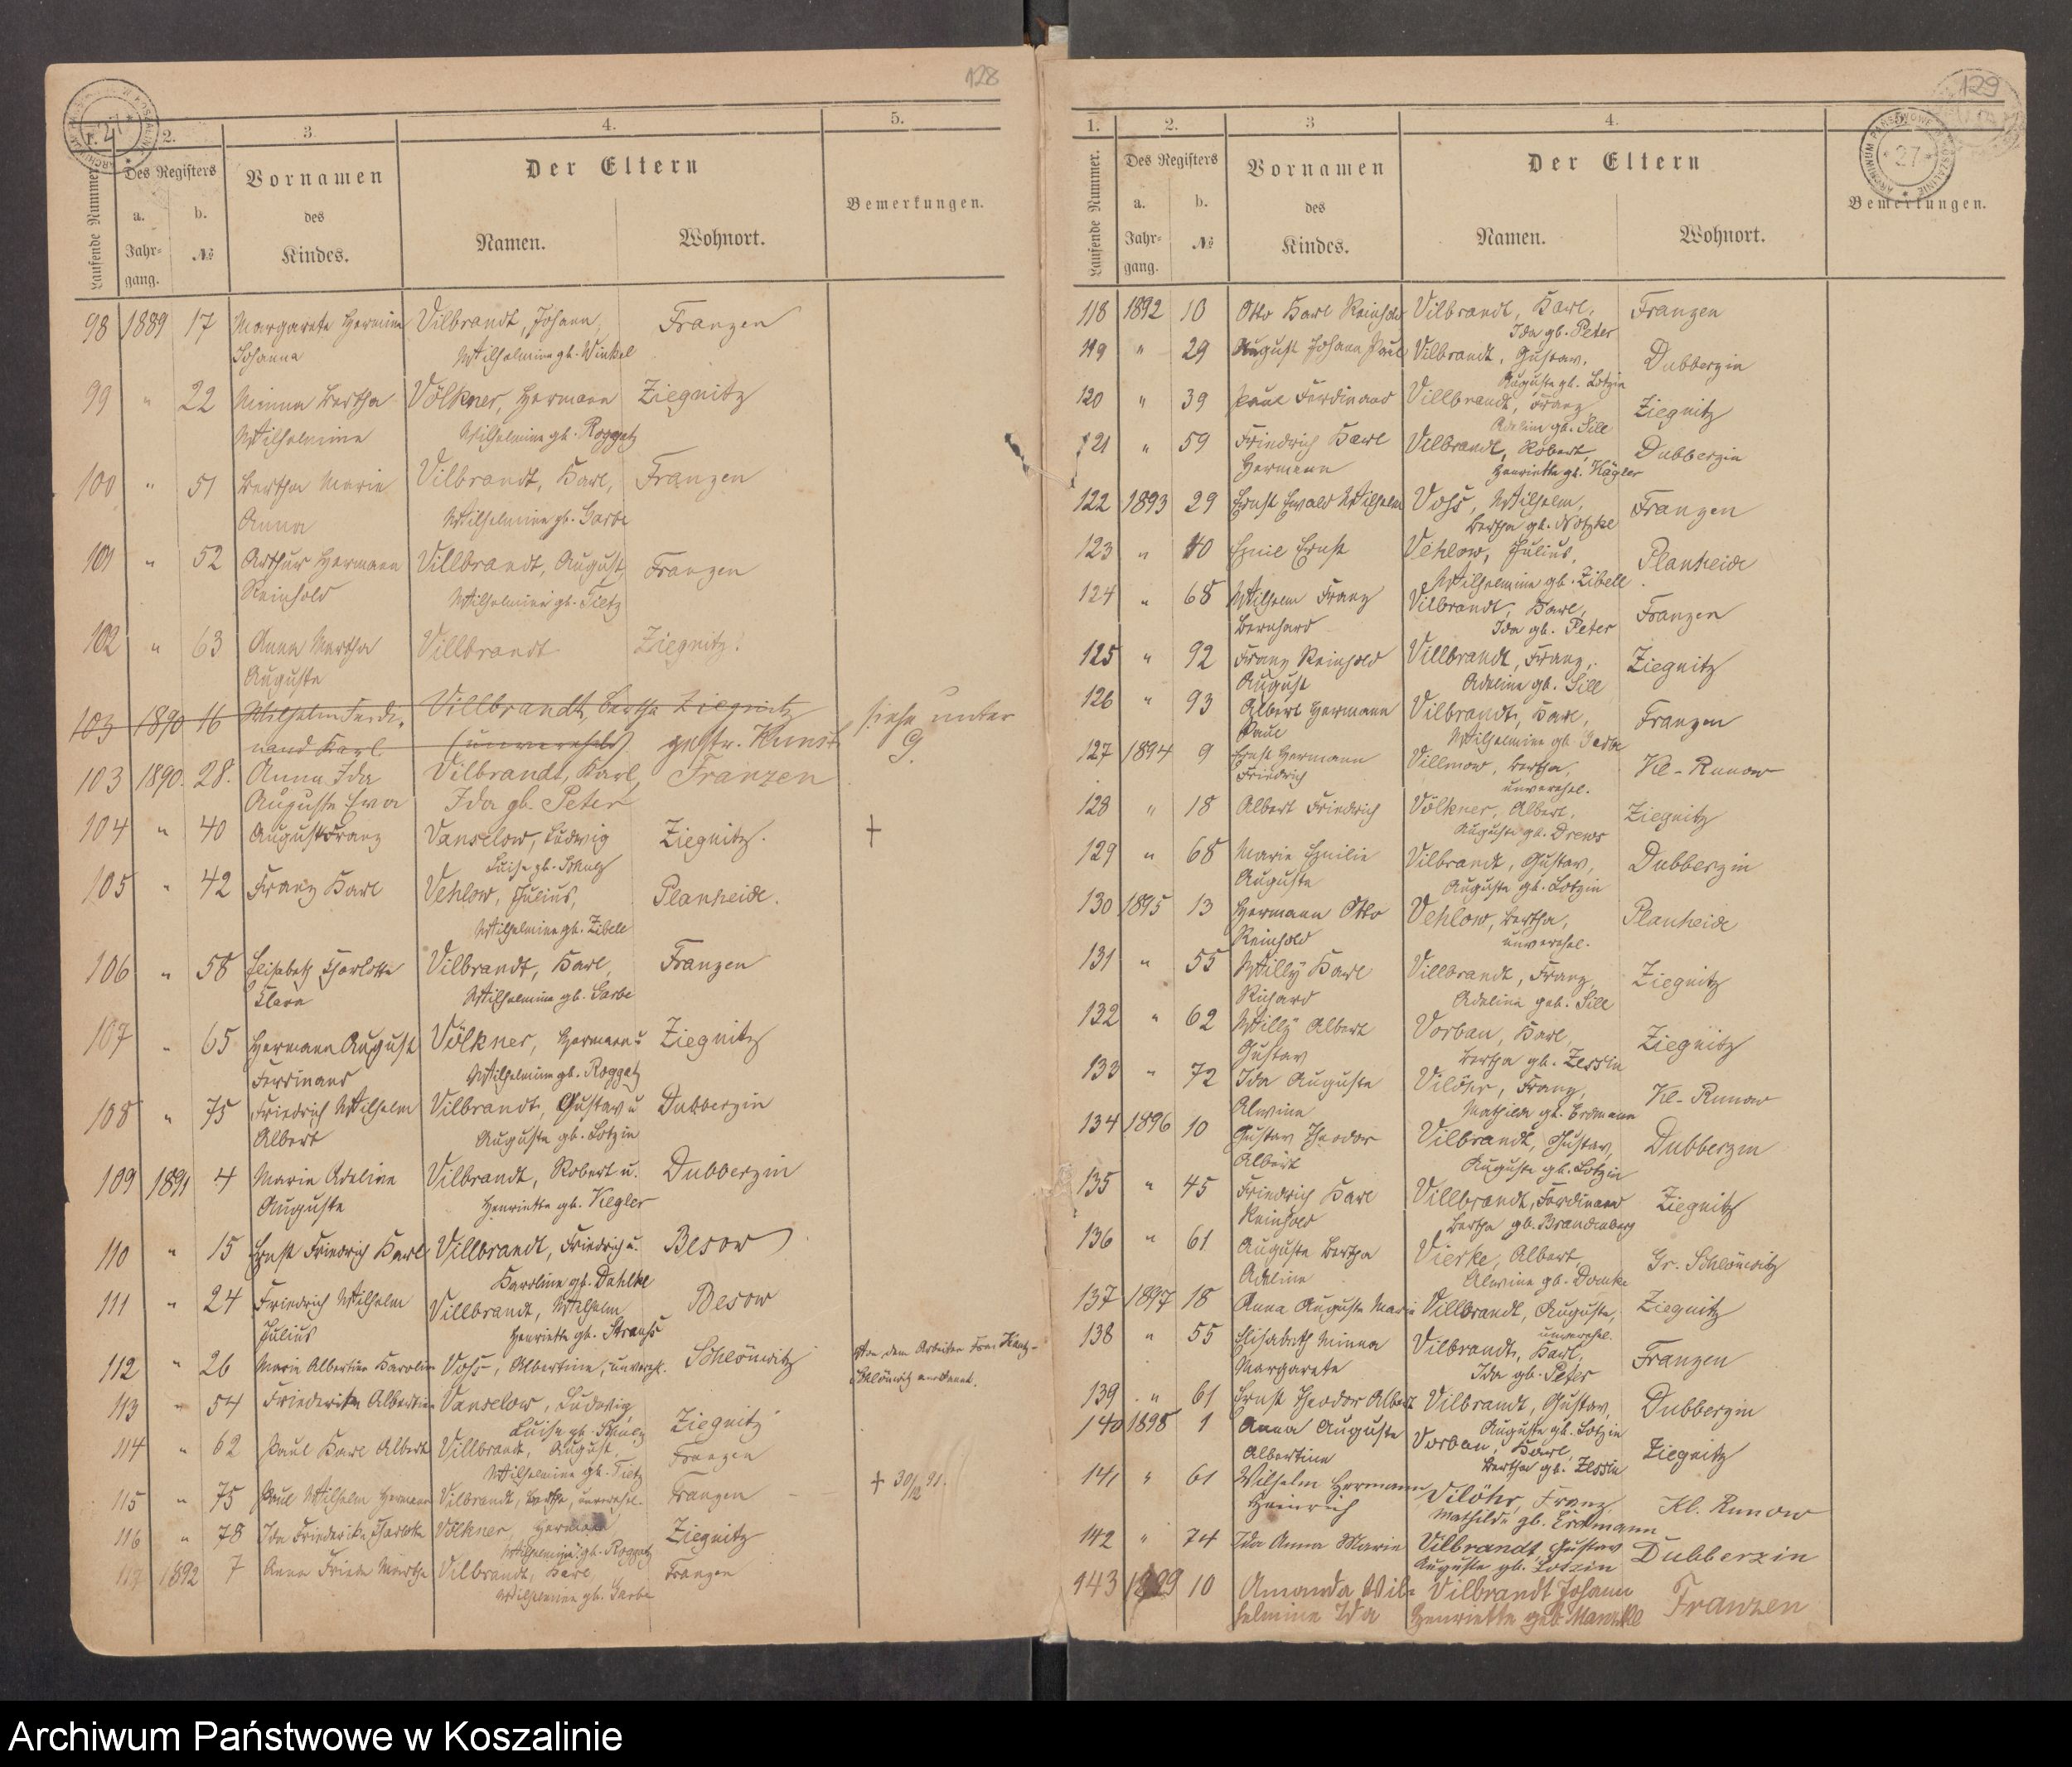 128
1. 2. 3. 4. 5.
Laufende Nummer.
Des Registers
a. Jahrgang.
b. №
Vornamen des Kindes.
Der Eltern
Namen. Wohnort.
Bemerkungen.
98 1889 17 Margarete Hermine Vilbrandt, Johann, Franzen
Johanna Wilhelmine gb. Winkel
99 " 22 Minna Bertha Völkner, Hermann Ziegnitz
Wilhelmine Wilhelmine gb. Roggatz
100 " 51 Bertha Marie Vilbrandt, Karl, Franzen
Anna Wilhelmine gb. Garbe
101 " 52 Arthur Hermann Villbrandt, August, Franzen
Reinhold Wilhelmine gb. Tietz
102 " 63 Anna Martha Villbrandt Ziegnitz.
Auguste
103 1890 16 Wilhelm Ferdi- Villbrandt, Bertha Ziegnitz siehe unter
nand Karl (unverehel.) gestr. G.
103 1890. 28. Anna Ida Vilbrandt, Karl, Franzen
Auguste Ewa Ida gb. Peter
104 " 40 August Franz Vanselow, Ludwig Ziegnitz. +
Luise gb. Schulz
105 " 42 Franz Karl Vehlow, Julius, Planheide.
Wilhelmine gb. Zibell
106 " 58 Elisabeth Charlotte Vilbrandt, Karl, Franzen
Clara Wilhelmine gb. Garbe
107 " 65 Hermann August Völkner, Hermann u Ziegnitz
Ferdinand Wilhelmine gb. Roggatz
108 " 75 Friedrich Wilhelm Vilbrandt, Gustav u Dubberzin
Albert Auguste gb. Lotzin
109 1891 4 Marie Adeline Vilbrandt, Robert u. Dubberzin
Auguste Henriette gb. Kegler
110 " 15 Ernst Friedrich Karl Villbrandt, Friedrich u. Besow
Karoline gb. Dahlke
111 " 24 Friedrich Wilhelm Villbrandt, Wilhelm Besow
Julius Henriette gb. Strauhs
112 " 26 Marie Albertine Karoline Vohs, Albertine, unverehl. Schlönwitz Von dem Arbeiter
Schlönwitz anerkannt.
113 " 54 Friederike Albertine Vanselow, Ludwig, Ziegnitz
Luise gb. Schulz
114 " 62 Paul Karl Albert Villbrandt, August, Franzen
Wilhelmine gb. Tietz
115 " 75 Paul Wilhelm Hermann Vilbrandt, Bertha, unverehel. Franzen + 30/12 91.
116 " 78 Ida Friederike Charlotte Völkner, Hermann Ziegnitz
Wilhelmine gb. Roggatz
117 1892 7 Anna Frieda Martha Vilbrandt, Karl Franzen
Wilhelmine gb. Garbe
129
1. 2. 3 4.
Laufende Nummer.
Des Registers
a. Jahrgang.
b. №
Vornamen des Kindes.
Der Eltern
Namen. Wohnort.
Bemerkungen.
ARCHIWUM PAŃSTWOWE W KOSZALINIE
27
118 1892 10 Otto Karl Reinhold Vilbrandt, Karl, Franzen
Ida gb. Peter
119 " 29 August Johann Paul Vilbrandt, Gustav, Dubberzin
Auguste gb. Lotzin
120 " 39 Paul Ferdinand Villbrandt, Franz Ziegnitz
Adeline gb. Sill
121 " 59 Friedrich Karl Vilbrandt, Robert, Dubberzin
Hermann Henriette gb. Kägler
122 1893 29 Ernst Ewald Wilhelm Vohs, Wilhelm, Franzen
Bertha gb. Notzke
123 " 40 Emil Ernst Vehlow, Julius, Planheide
Wilhelmine gb. Zibell
124 " 68 Wilhelm Franz Vilbrandt, Karl, Franzen
Bernhard Ida gb. Peter
125 " 92 Franz Reinhold Villbrandt, Franz, Ziegnitz
August Adeline gb. Sill
126 " 93 Albert Hermann Vilbrandt, Karl, Franzen
Paul Wilhelmine gb. Garbe
127 1894 9 Ernst Hermann Villmow, Bertha, Kl-Runow
Friedrich unverehel.
128 " 18 Albert Friedrich Völkner, Albert, Ziegnitz
Auguste gb. Drews
129 " 68 Marie Emilie Vilbrandt, Gustav, Dubberzin
Auguste Auguste gb. Lotzin
130 1895 13 Hermann Otto Vehlow, Bertha, Planheide
Reinhold unverehel.
131 " 55 Willy Karl Villbrandt, Franz, Ziegnitz
Richard Adeline geb. Sill
132 " 62 Willy Albert Vorbau, Karl, Ziegnitz
Gustav Bertha gb. Zessin
133 " 72 Ida Auguste Vilöhr, Franz, Kl-Runow
Alwine Mathilde gb. Erdmann
134 1896 10 Gustav Theodor Vilbrandt, Gustav, Dubberzin
Albert Auguste gb. Lotzin
135 " 45 Friedrich Karl Villbrandt, Ferdinand Ziegnitz
Reinhold Bertha gb. Brandenburg
136 " 61 Auguste Bertha Vierke, Albert, Gr. Schlönwitz
Adeline Alwine gb. Domke
137 1897 18 Anna Auguste Marie Villbrandt, Auguste, Ziegnitz
unverehel.
138 " 55 Elisabeth Minna Vilbrandt, Karl, Franzen
Margarete Ida gb. Peter
139 " 61 Ernst Theodor Albert Vilbrandt, Gustav, Dubberzin
Auguste gb. Lotzin
140 1898 1 Anna Auguste Vorbau, Karl, Ziegnitz
Albertine Bertha gb. Zessin
141 " 61 Wilhelm Hermann Vilöhr, Franz Kl. Runow
Heinrich Mathilde gb. Erdmann
142 " 74 Ida Anna Marie Vilbrandt, Gustav Dubberzin
Auguste gb. Lotzin
143 1899 10 Amanda Wil- Vilbrandt Johann Franzen
helmine Ida Henriette geb. Manzke
Archiwum Państwowe w Koszalinie